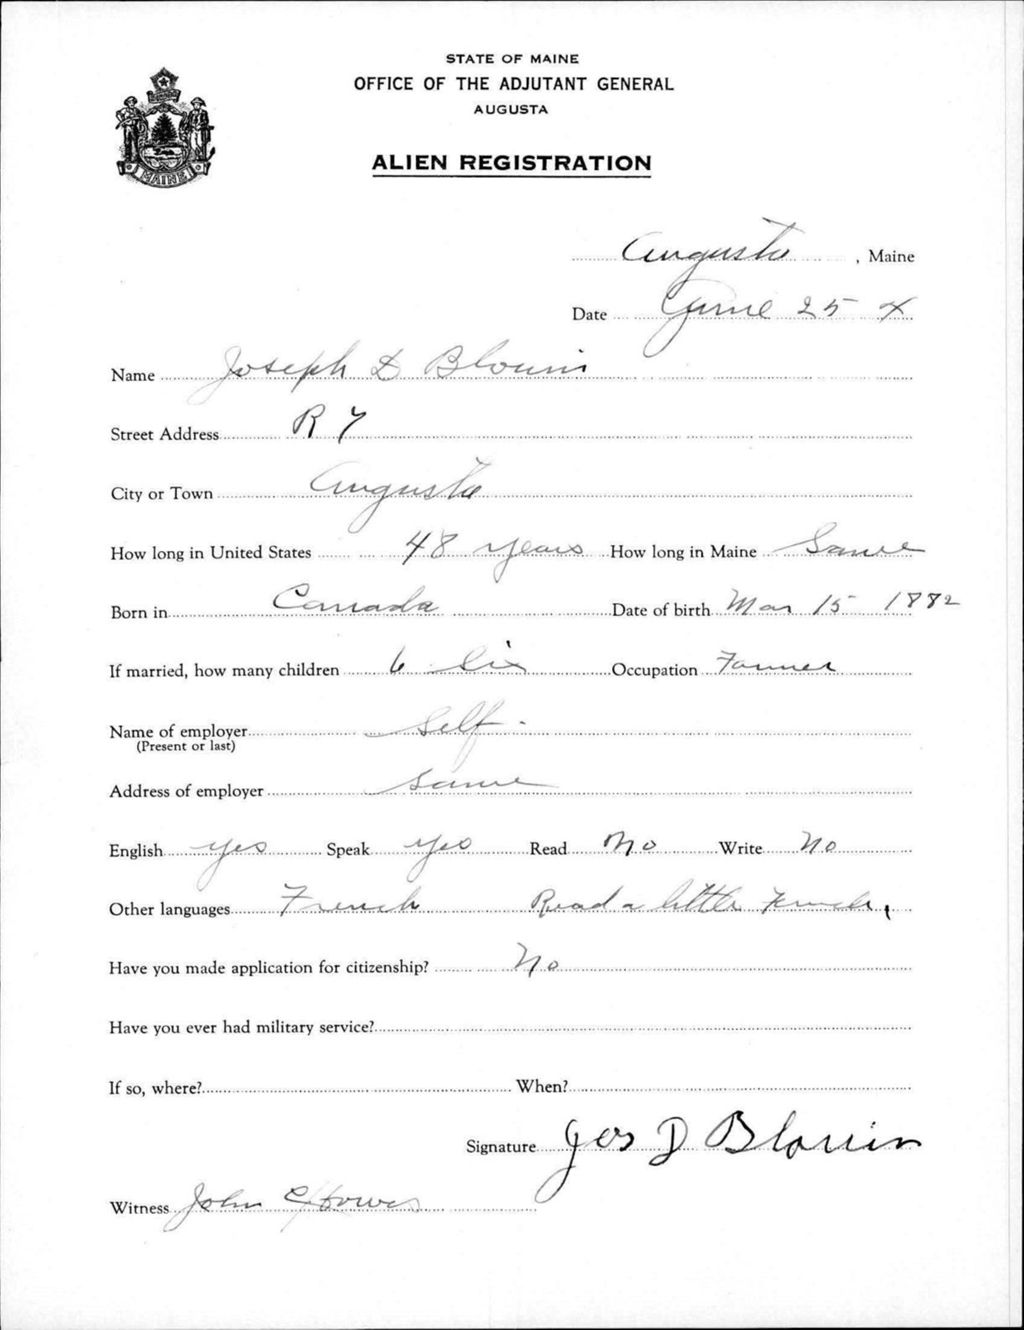 STATE OF MAINE
OFFICE OF THE ADJUTANT GENERAL
AUGUSTA
ALIEN REGISTRATION
MAINE
Augusta, Maine
Date June 25
Name Joseph D Blouin
Street Address R 7
City or Town Augusta
How long in United States 48 years How long in Maine Same
Born in Canada Date of birth Mar 15 1882
If married, how many children 6 Six Occupation Farmer
Name of employer Self.
(Present or last)
Address of employer Same
English yes Speak yes Read No Write No
Other languages French Read a little French,
Have you made application for citizenship? No
Have you ever had military service?
If so, where? When?
Signature Jos D Blouin
Witness John C Howes